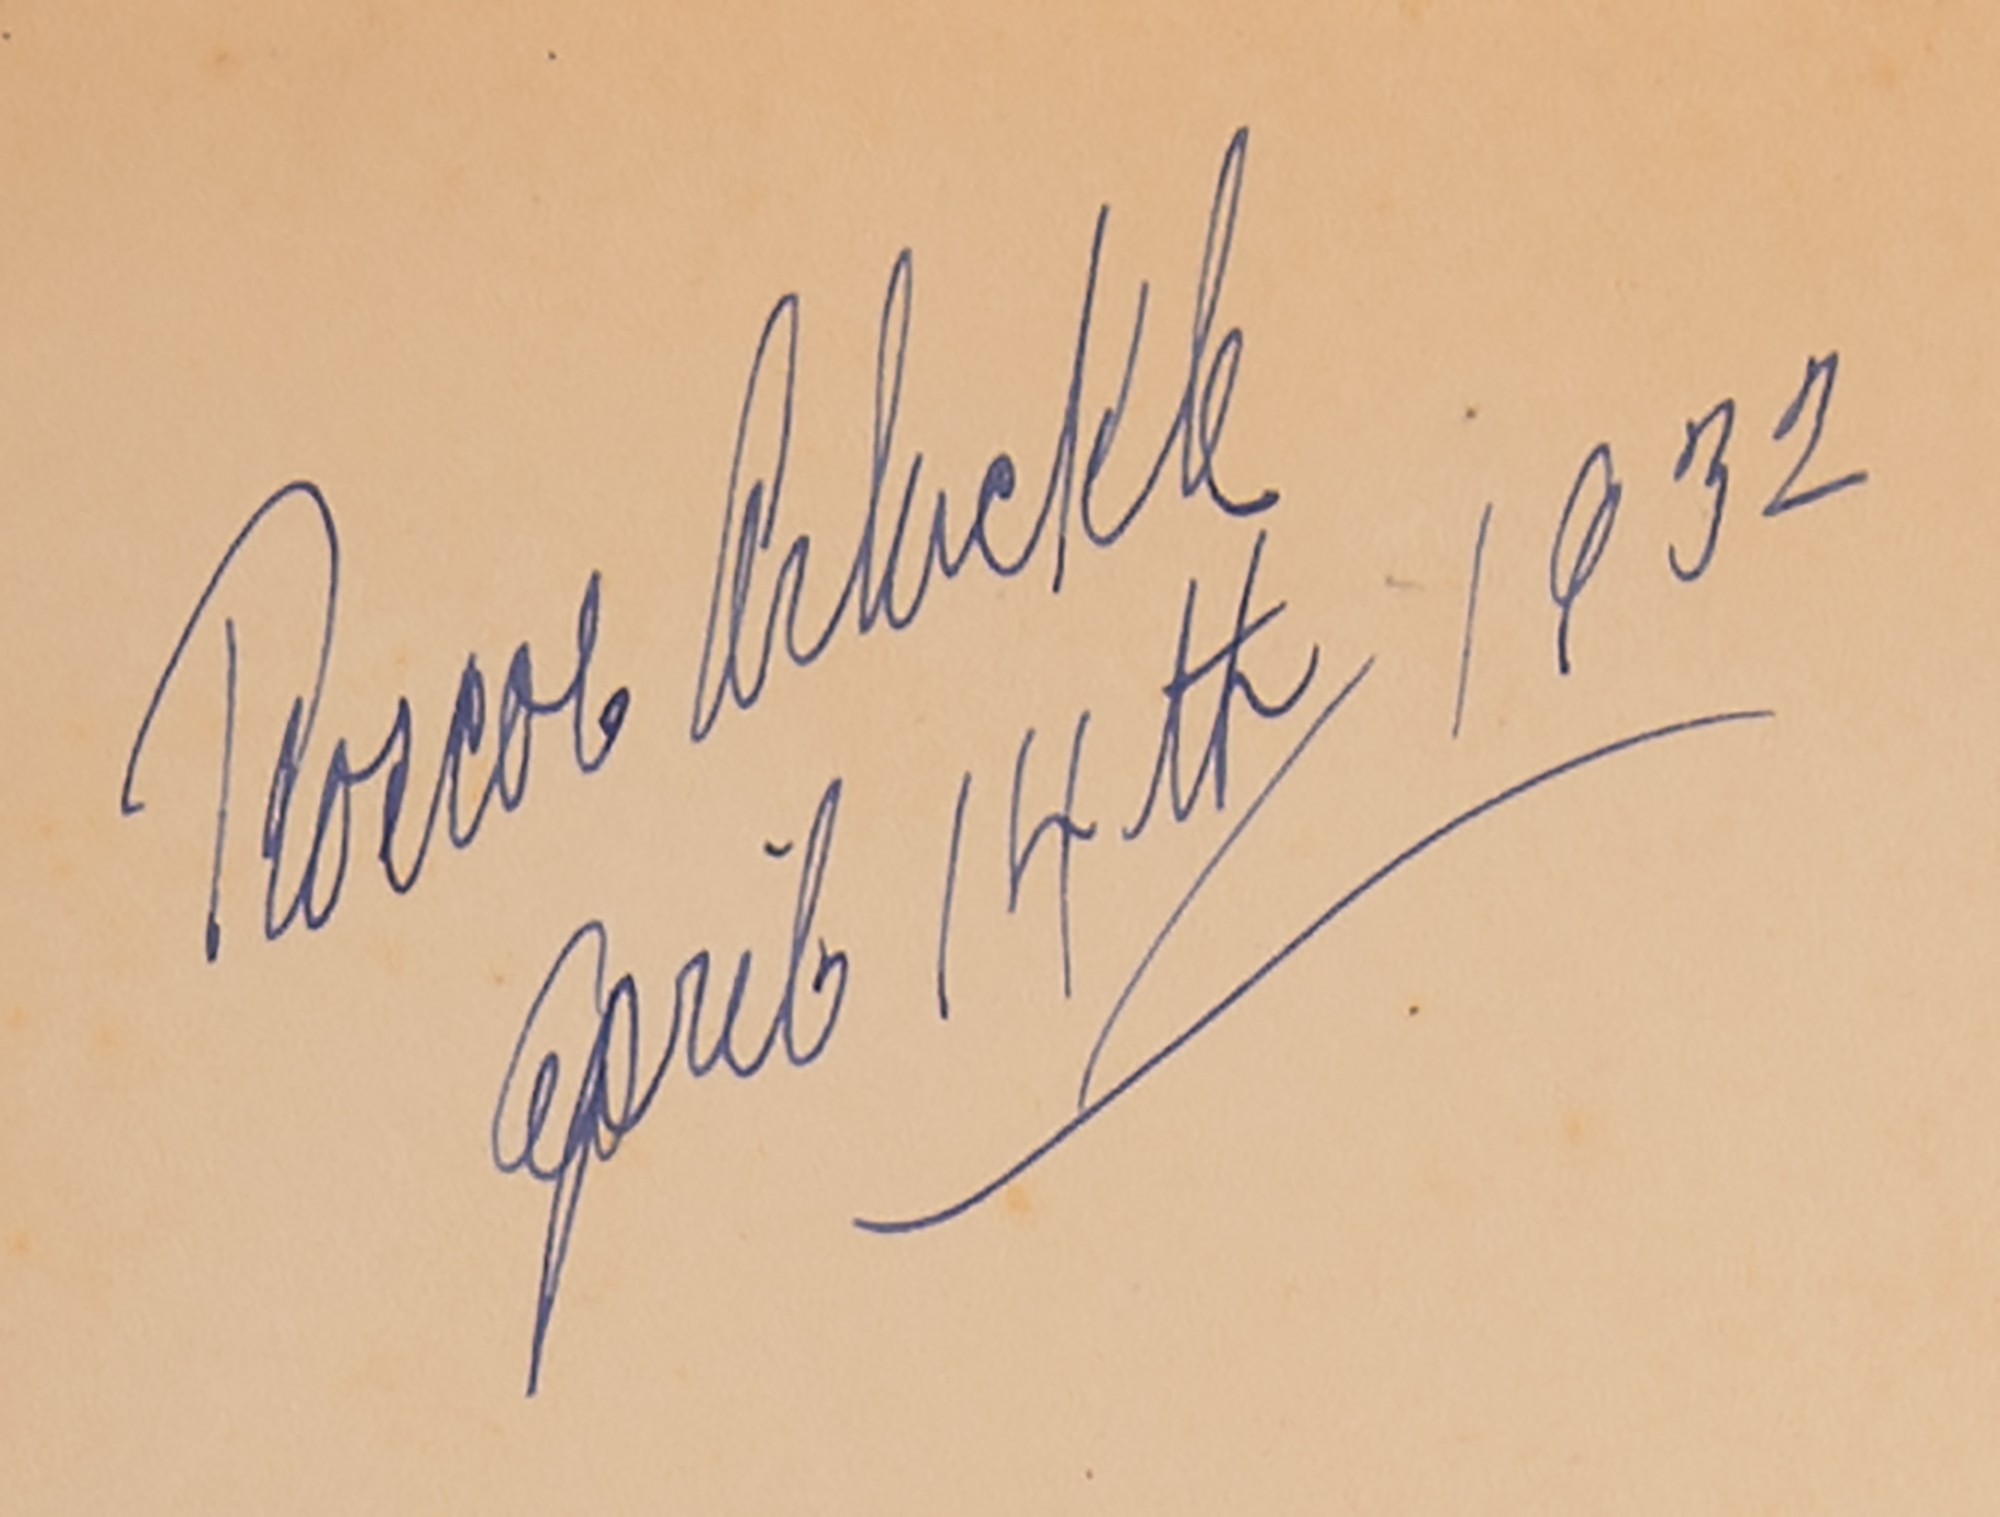 Roscoe Arbuckle
April 14th 1932